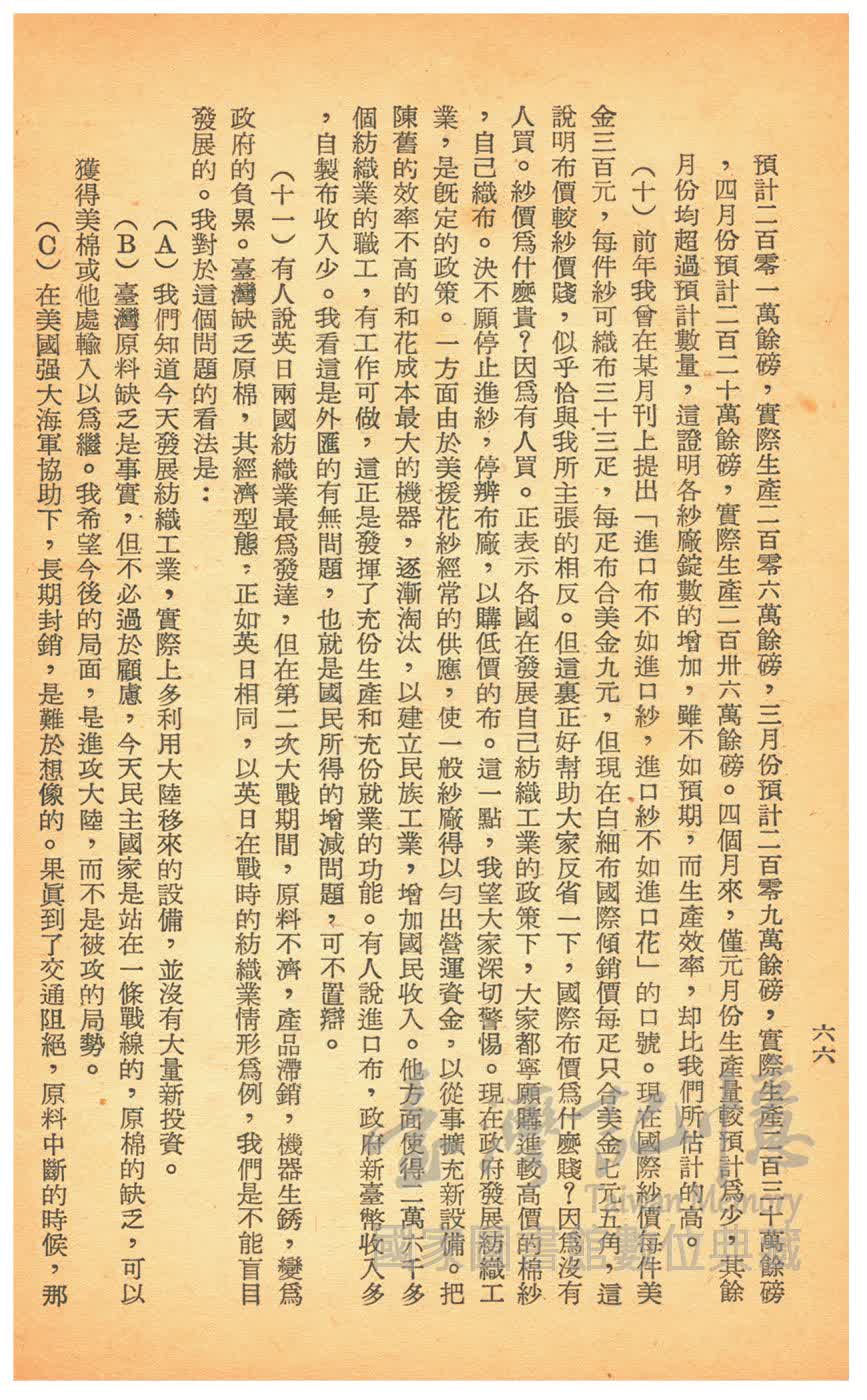 六六
預計二百零一萬餘磅，實際生產二百零六萬餘磅，三月份預計二百零九萬餘磅，實際生產二百三十萬餘磅
，四月份預計二百二十萬餘磅，實際生產二百卅六萬餘磅。四個月來，僅元月份生產量較預計爲少，其餘
月份均超過預計數量，這證明各紗廠錠數的增加，雖不如預期，而生產效率，却比我們所估計的高。
（十）前年我曾在某月刊上提出「進口布不如進口紗，進口紗不如進口花」的口號。現在國際紗價每件美
金三百元，每件紗可織布三十三疋，每疋布合美金九元，但現在白細布國際傾銷價每疋只合美金七元五角，這
說明布價較紗價賤，似乎恰與我所主張的相反。但這裏正好幫助大家反省一下，國際布價爲什麽賤？因爲沒有
人買。紗價爲什麽貴？因爲有人買。正表示各國在發展自己紡織工業的政策下，大家都寧願購進較高價的棉紗
，自己織布。決不願停止進紗，停辦布廠，以購低價的布。這一點，我望大家深切警惕。現在政府發展紡織工
業，是旣定的政策。一方面由於美援花紗經常的供應，使一般紗廠得以勻出營運資金，以從事擴充新設備。把
陳舊的效率不高的和花成本最大的機器，逐漸淘汰，以建立民族工業，增加國民收入。他方面使得二萬六千多
個紡織業的職工，有工作可做，這正是發揮了充份生產和充份就業的功能。有人說進口布，政府新臺幣收入多
，自製布收入少。我看這是外匯的有無問題，也就是國民所得的增減問題，可不置辯。
（十一）有人說英日兩國紡織業最爲發達，但在第二次大戰期間，原料不濟，產品滯銷，機器生銹，變爲
政府的負累。臺灣缺乏原棉，其經濟型態，正如英日相同，以英日在戰時的紡織業情形爲例，我們是不能盲目
發展的。我對於這個問題的看法是：
（A）我們知道今天發展紡織工業，實際上多利用大陸移來的設備，並沒有大量新投資。
（B）臺灣原料缺乏是事實，但不必過於顧慮，今天民主國家是站在一條戰線的，原棉的缺乏，可以
獲得美棉或他處輸入以爲繼。我希望今後的局面，是進攻大陸，而不是被攻的局勢。
（C）在美國强大海軍協助下，長期封銷，是難於想像的。果眞到了交通阻絕，原料中斷的時候，那
臺灣記憶
Taiwan Memory
國家圖書館數位典藏